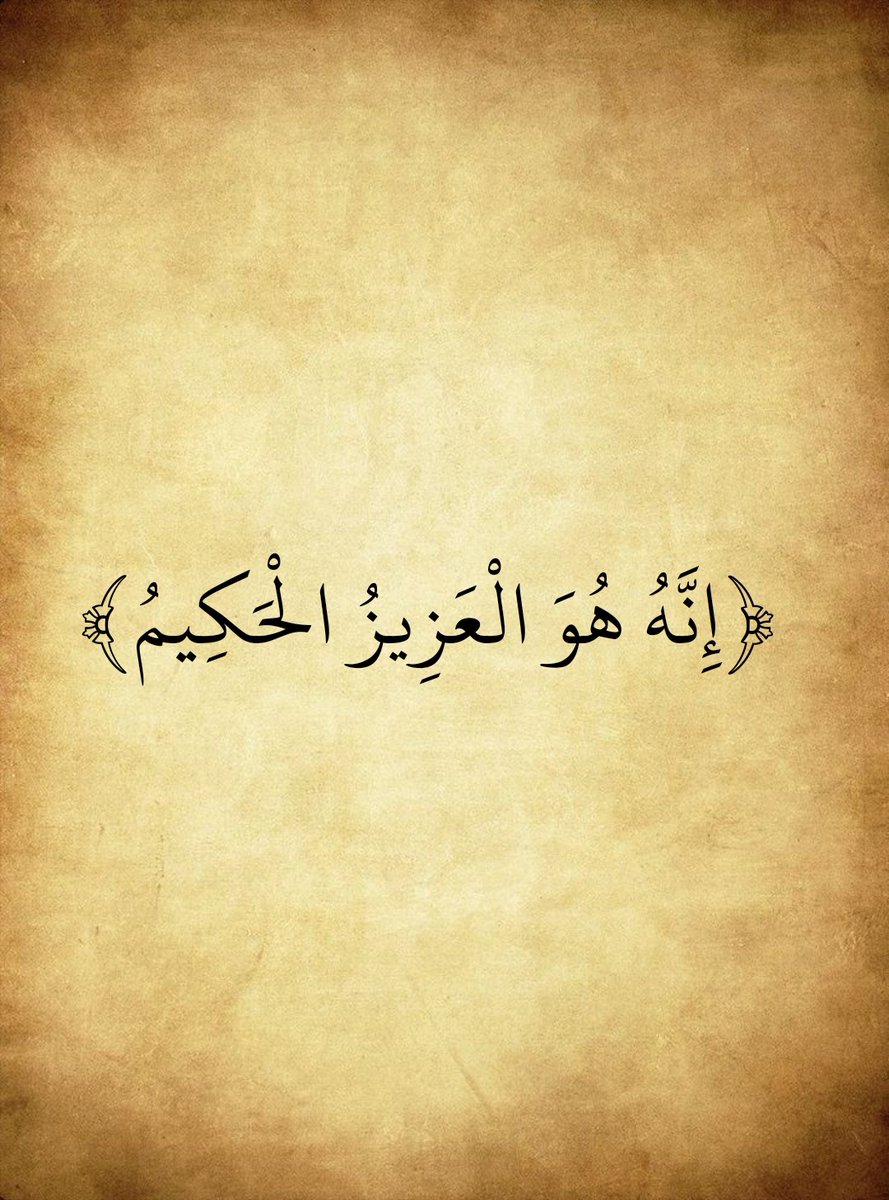 ﴿إِنَّهُ هُوَ الْعَزِيزُ الْحَكِيمُ﴾